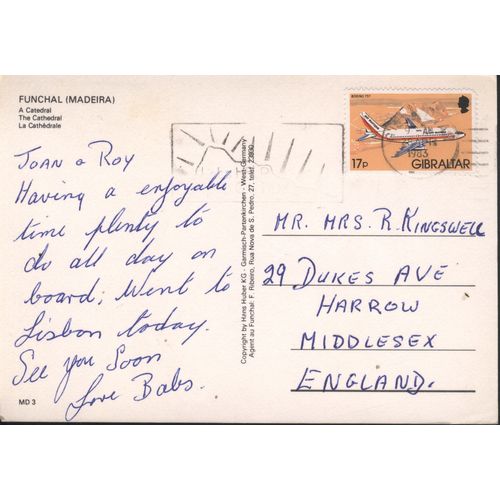 FUNCHAL (MADEIRA)
A Catedral
The Cathedral
La Cathédrale
JOAN & ROY
Having a enjoyable
time plenty to
do all day on
board; Went to
Lisbon today.
See you Soon
Love Babs.
MD 3
Copyright by Hans Huber KG - Garmisch-Partenkirchen - West-Germany
Agent au Funchal: F. Ribeiro, Rua Nova de S. Pedro, 27, telef. 23930
BOEING 737
1983
17p GIBRALTAR
MR. MRS. R. KINGSWELL
29 DUKES AVE
HARROW
MIDDLESEX
ENGLAND.